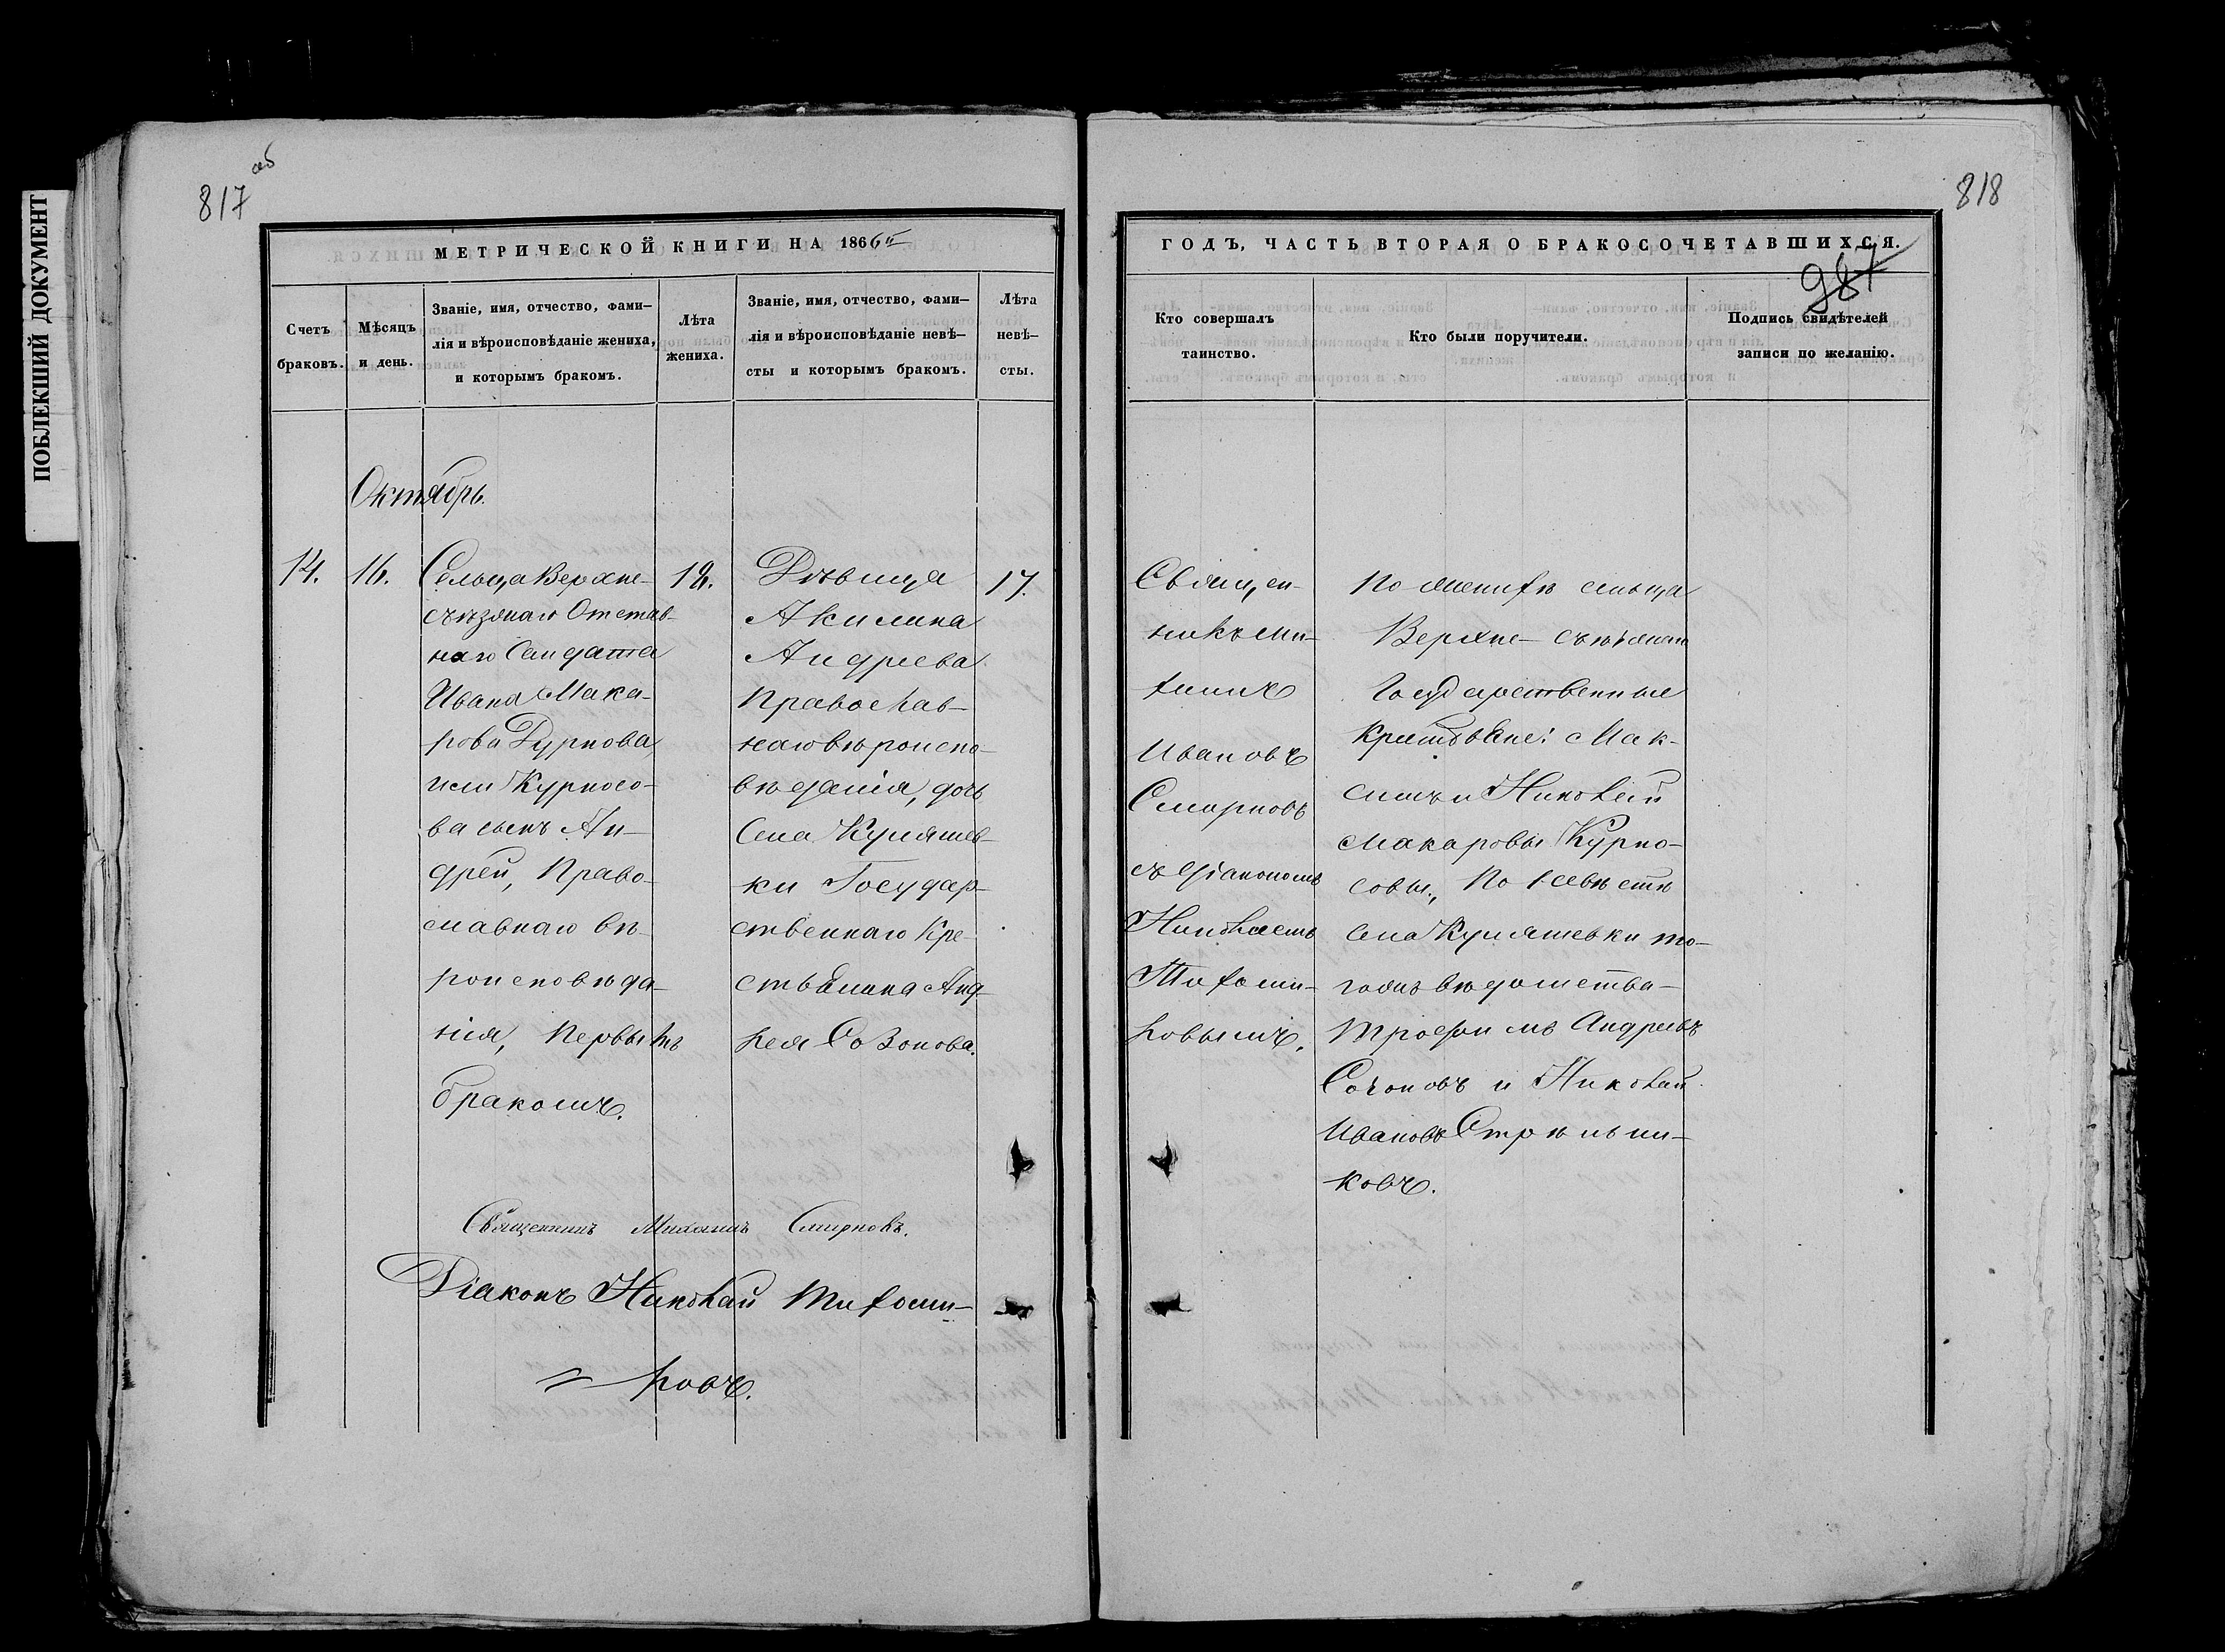 ПОБЛЕКШИЙ ДОКУМЕНТ
817 об
МЕТРИЧЕСКОЙ КНИГИ НА 1866й
Счетъ браковъ.
Мѣсяцъ и день.
Званіе, имя, отчество, фами-
лія и вѣроисповѣданіе жениха,
и которымъ бракомъ.
Лѣта
жениха.
Званіе, имя, отчество, фами-
лія и вѣроисповѣданіе невѣ-
сты и которымъ бракомъ.
Лѣта
невѣ-
сты.
Октябрь.
14.
16.
Сельца Верхне-
съѣзжаго Отстав-
наго Солдата
Ивана Мака-
рова Дурнова
или Курносо-
ва сынъ Ан-
дрей, Право-
славнаго вѣ-
роисповѣда-
нія, первымъ
бракомъ.
18.
Дѣвица
Акилина
Андреева
Православ-
наго вѣроиспо-
вѣданія, дочь
Села Куляшев-
ки Государ-
ственнаго Кре-
стьянина Анд-
рея Созонова.
17.
Священникъ Михаилъ Смирновъ.
Діаконъ Николай Тихоми-
ровъ.
818
ГОДЪ, ЧАСТЬ ВТОРАЯ О БРАКОСОЧЕТАВШИХСЯ.
987
Кто совершалъ
таинство.
Кто были поручители.
Подпись свидѣтелей
записи по желанію.
Священ-
никъ Ми-
хаилъ
Ивановъ
Смирновъ
съ діакономъ
Николаемъ
Тихоми-
ровымъ.
По женихѣ сельца
Верхне-съѣзжаго
Государственные
Крестьяне: Мак-
симъ и Николай
Макаровы Курно-
совы, По невѣстѣ
села Куляшевки то-
гожъ вѣдомства-
Трофимъ Андреевъ
Созоновъ и Николай
Ивановъ Стрѣльни-
ковъ.